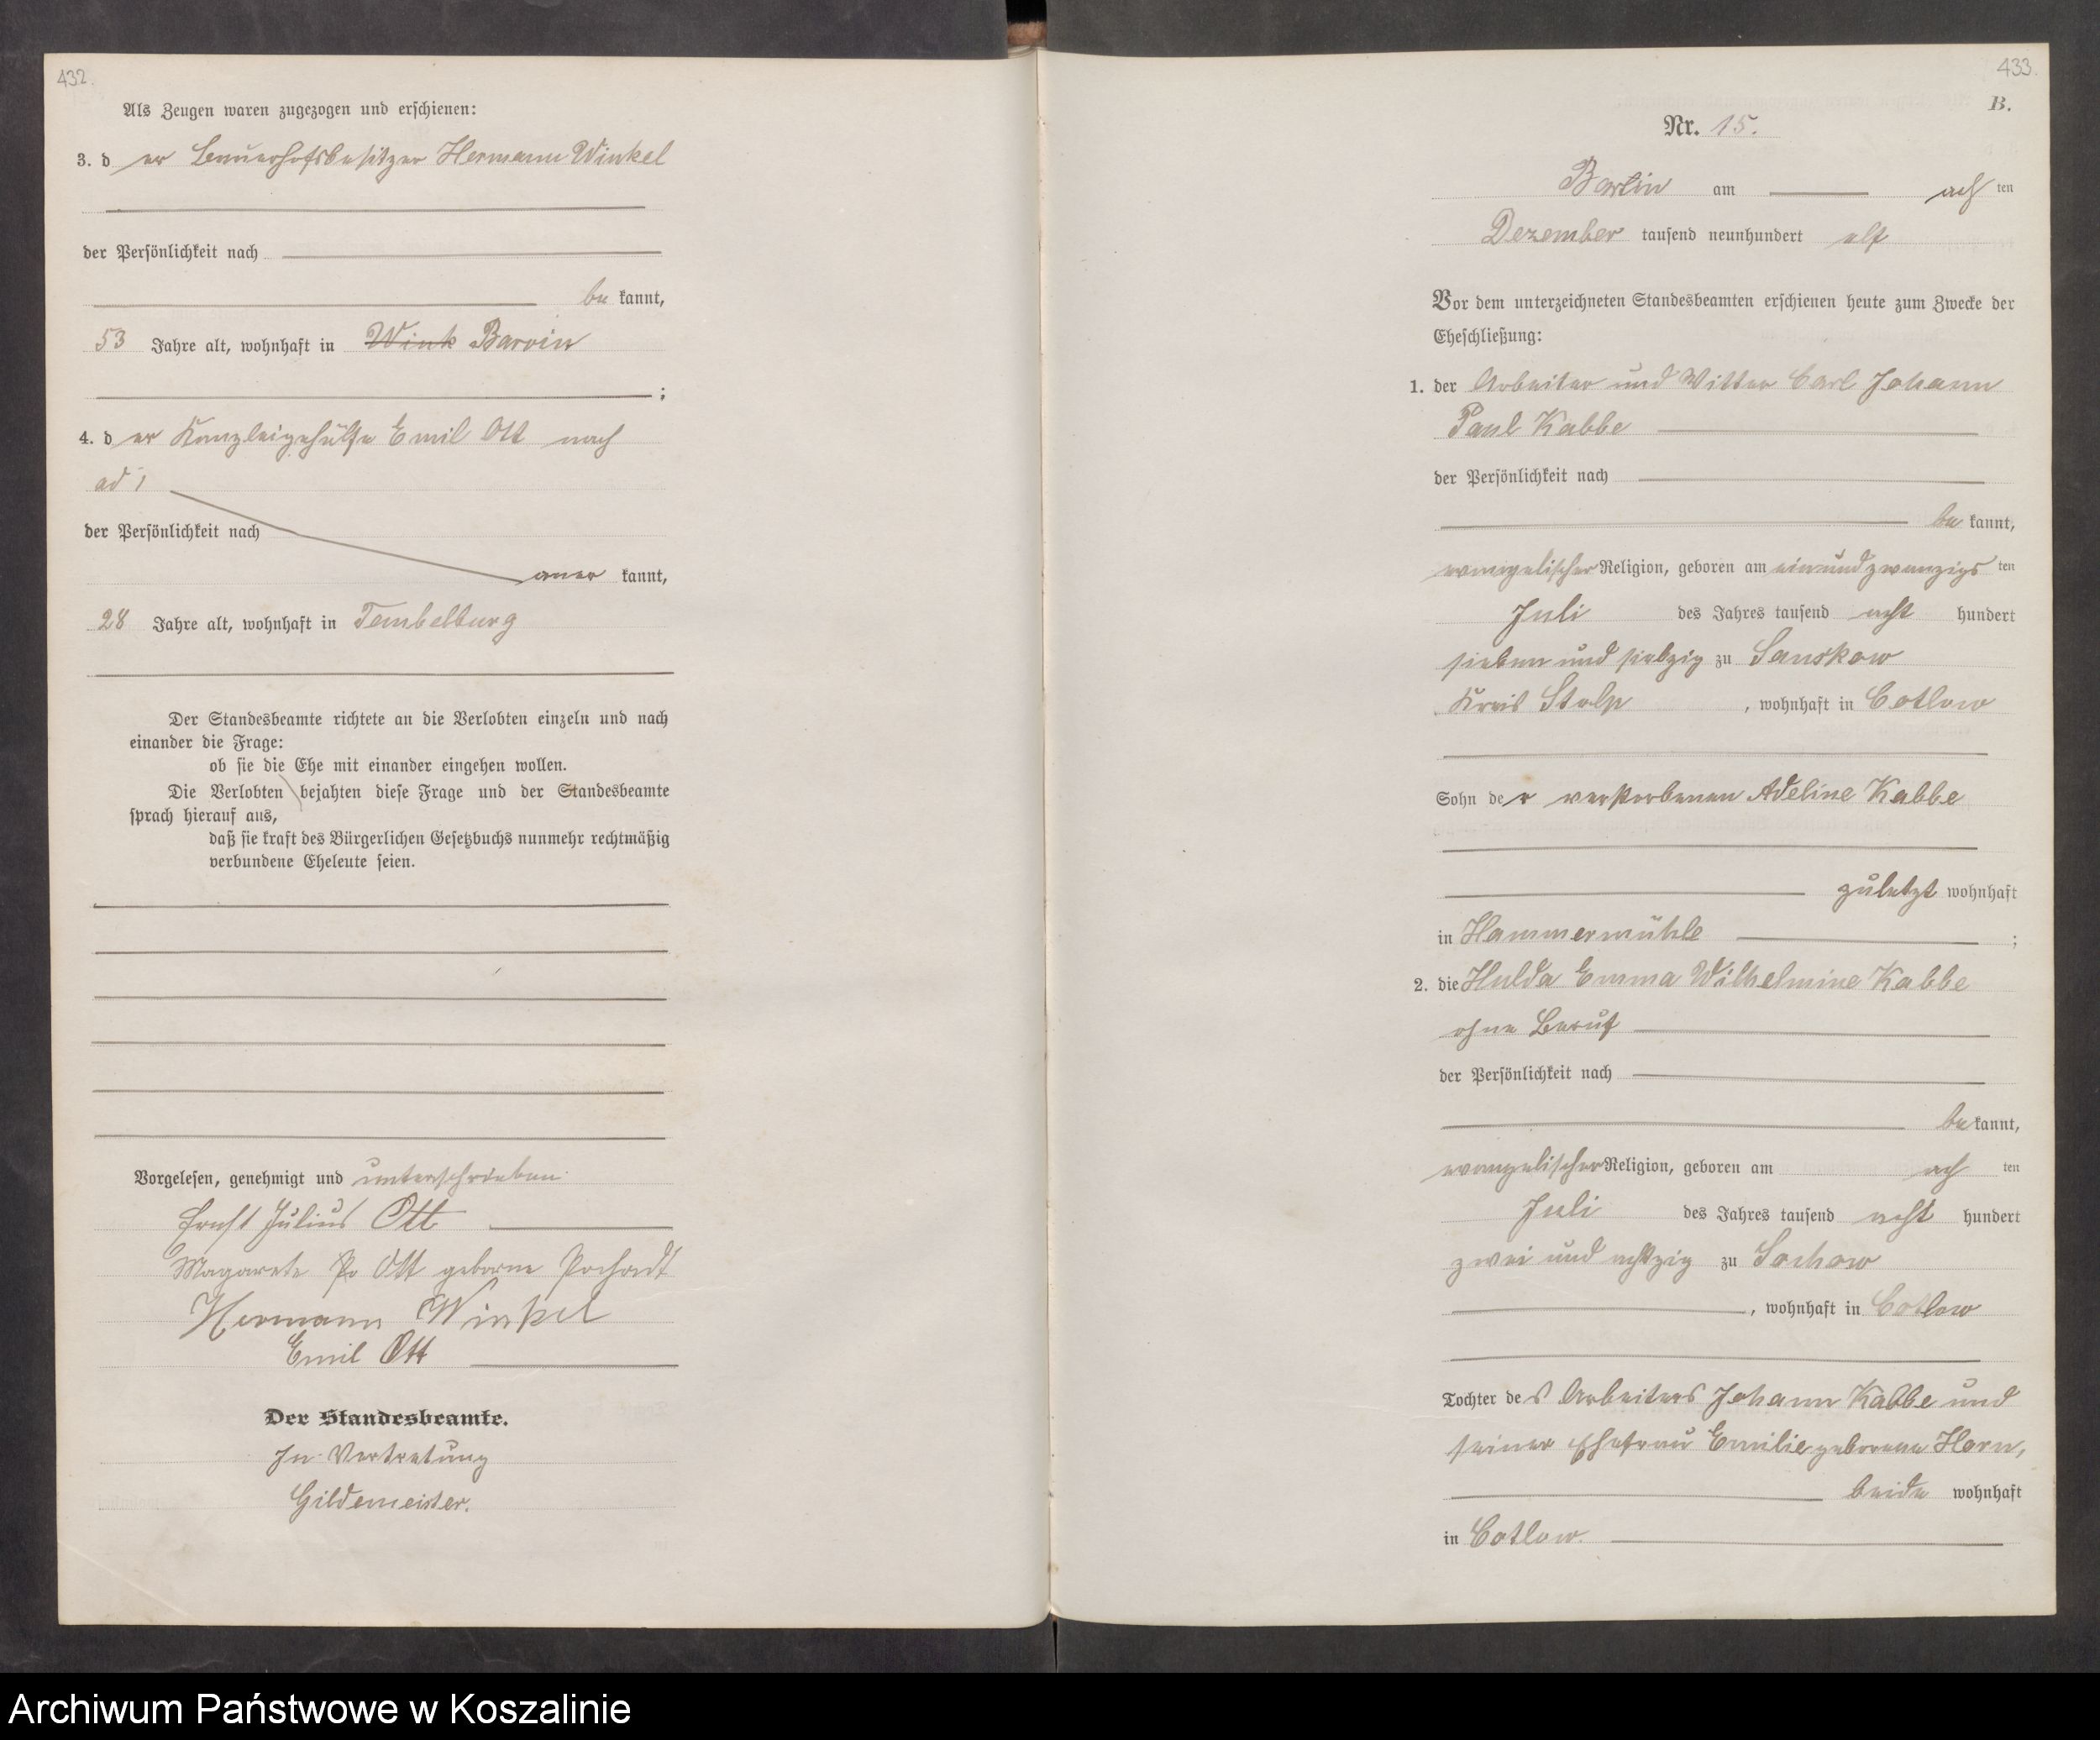 432.
Als Zeugen waren zugezogen und erschienen:
3. d er Bauerhofsbesitzer Hermann Winkel
der Persönlichkeit nach
be kannt,
53 Jahre alt, wohnhaft in Wink Barvin
;
4. d er Kanzleigehülfe Emil Ott nach
ad 1
der Persönlichkeit nach
aner kannt,
28 Jahre alt, wohnhaft in Tempelburg
Der Standesbeamte richtete an die Verlobten einzeln und nach
einander die Frage:
ob sie die Ehe mit einander eingehen wollen.
Die Verlobten bejahten diese Frage und der Standesbeamte
sprach hierauf aus,
daß sie kraft des Bürgerlichen Gesetzbuchs nunmehr rechtmäßig
verbundene Eheleute seien.
Vorgelesen, genehmigt und unterschrieben
Ernst Julius Ott
Magarete Po Ott geborne
Hermann Winkel
Emil Ott
Der Standesbeamte.
In Vertretung
Gildemeister.
433.
B.
Nr. 15.
Bartin am ach ten
Dezember tausend neunhundert elf
Vor dem unterzeichneten Standesbeamten erschienen heute zum Zwecke der
Eheschließung:
1. der Arbeiter und Witter Carl Johann
Paul Kabbe
der Persönlichkeit nach
be kannt,
evangelischer Religion, geboren am einundzwanzigs ten
Juli des Jahres tausend acht hundert
sieben und siebzig zu Sanskow
Kreis Stolp, wohnhaft in Cotlow
Sohn der verstorbenen Adeline Kabbe
zuletzt wohnhaft
in Hammermühle ;
2. die Hulda Emma Wilhelmine Kabbe
ohne Beruf
der Persönlichkeit nach
be kannt,
evangelischer Religion, geboren am ach ten
Juli des Jahres tausend acht hundert
zwei und achtzig zu Sochow
, wohnhaft in Cotlow
Tochter des Arbeiters Johann Kabbe und
seiner Ehefrau Emilie geborene Horn,
beide wohnhaft
in Cotlow.
Archiwum Państwowe w Koszalinie